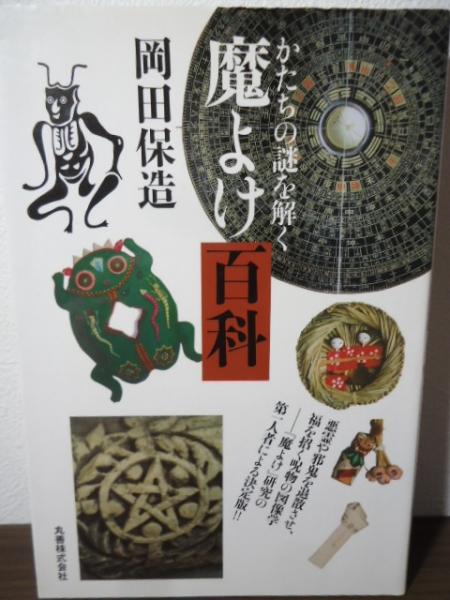 かたちの謎を解く
魔よけ
百科
岡田保造
悪霊や邪鬼を退散させ、
福を招く呪物の図像学
──「魔よけ」研究の
第一人者による決定版!!
丸善株式会社